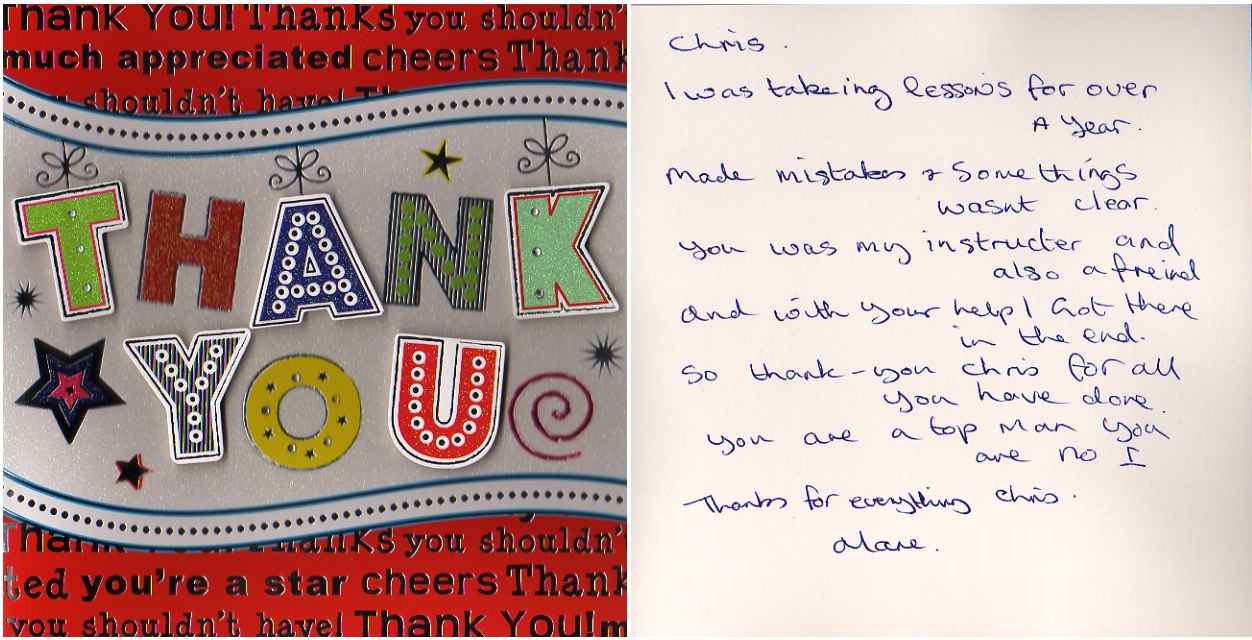 Thank You! Thanks you shouldn'
much appreciated cheers Thank
you shouldn't have! Th
THANK
YOU
Thank You! Thanks you shouldn'
ted you're a star cheers Thank
you shouldn't have! Thank You! m
Chris.
I was takeing lessons for over
A year.
Made mistakes & Somethings
wasnt clear.
You was my instructer and
also a freind
and with your help I Got there
in the end.
So thank-you Chris for all
you have done.
you are a top Man you
are no I
Thanks for everything Chris.